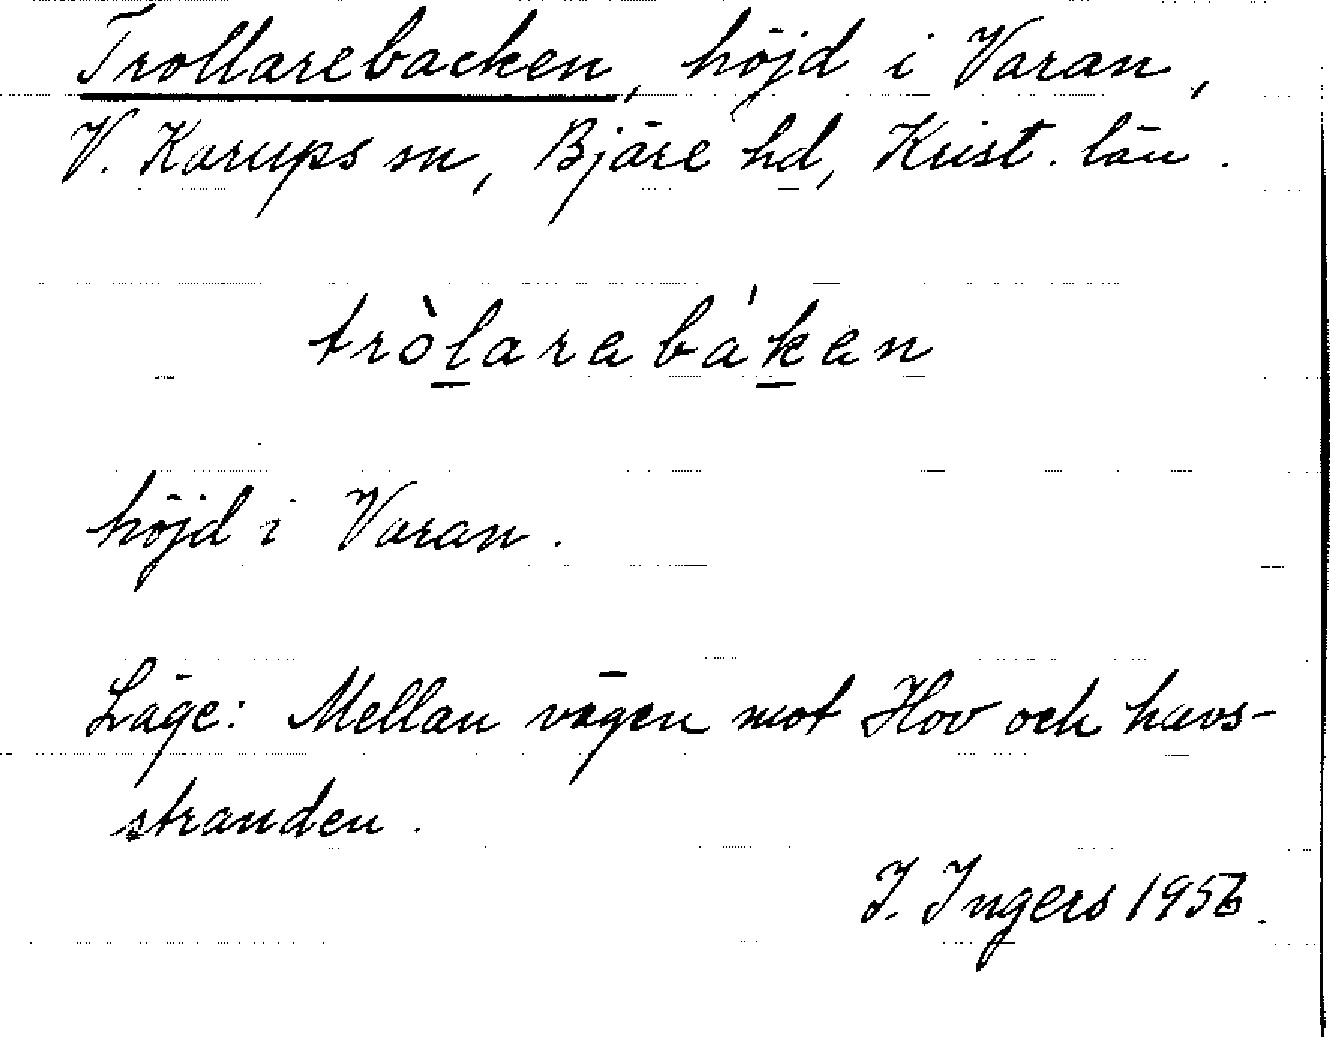 Trollarebacken, höjd i Varan,
V. Karups sn, Bjäre hd, Krist. län.
tròl̲arabák̲an
höjd i Varan.
Läge: Mellan vägen mot Hov och havs-
stranden.
I. Ingers 1956.